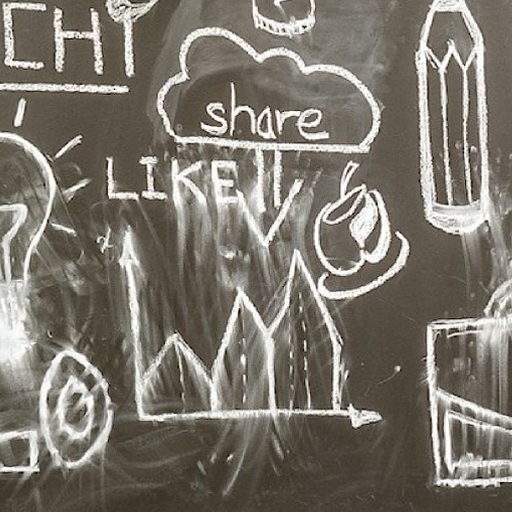 CHT
share
LIKE